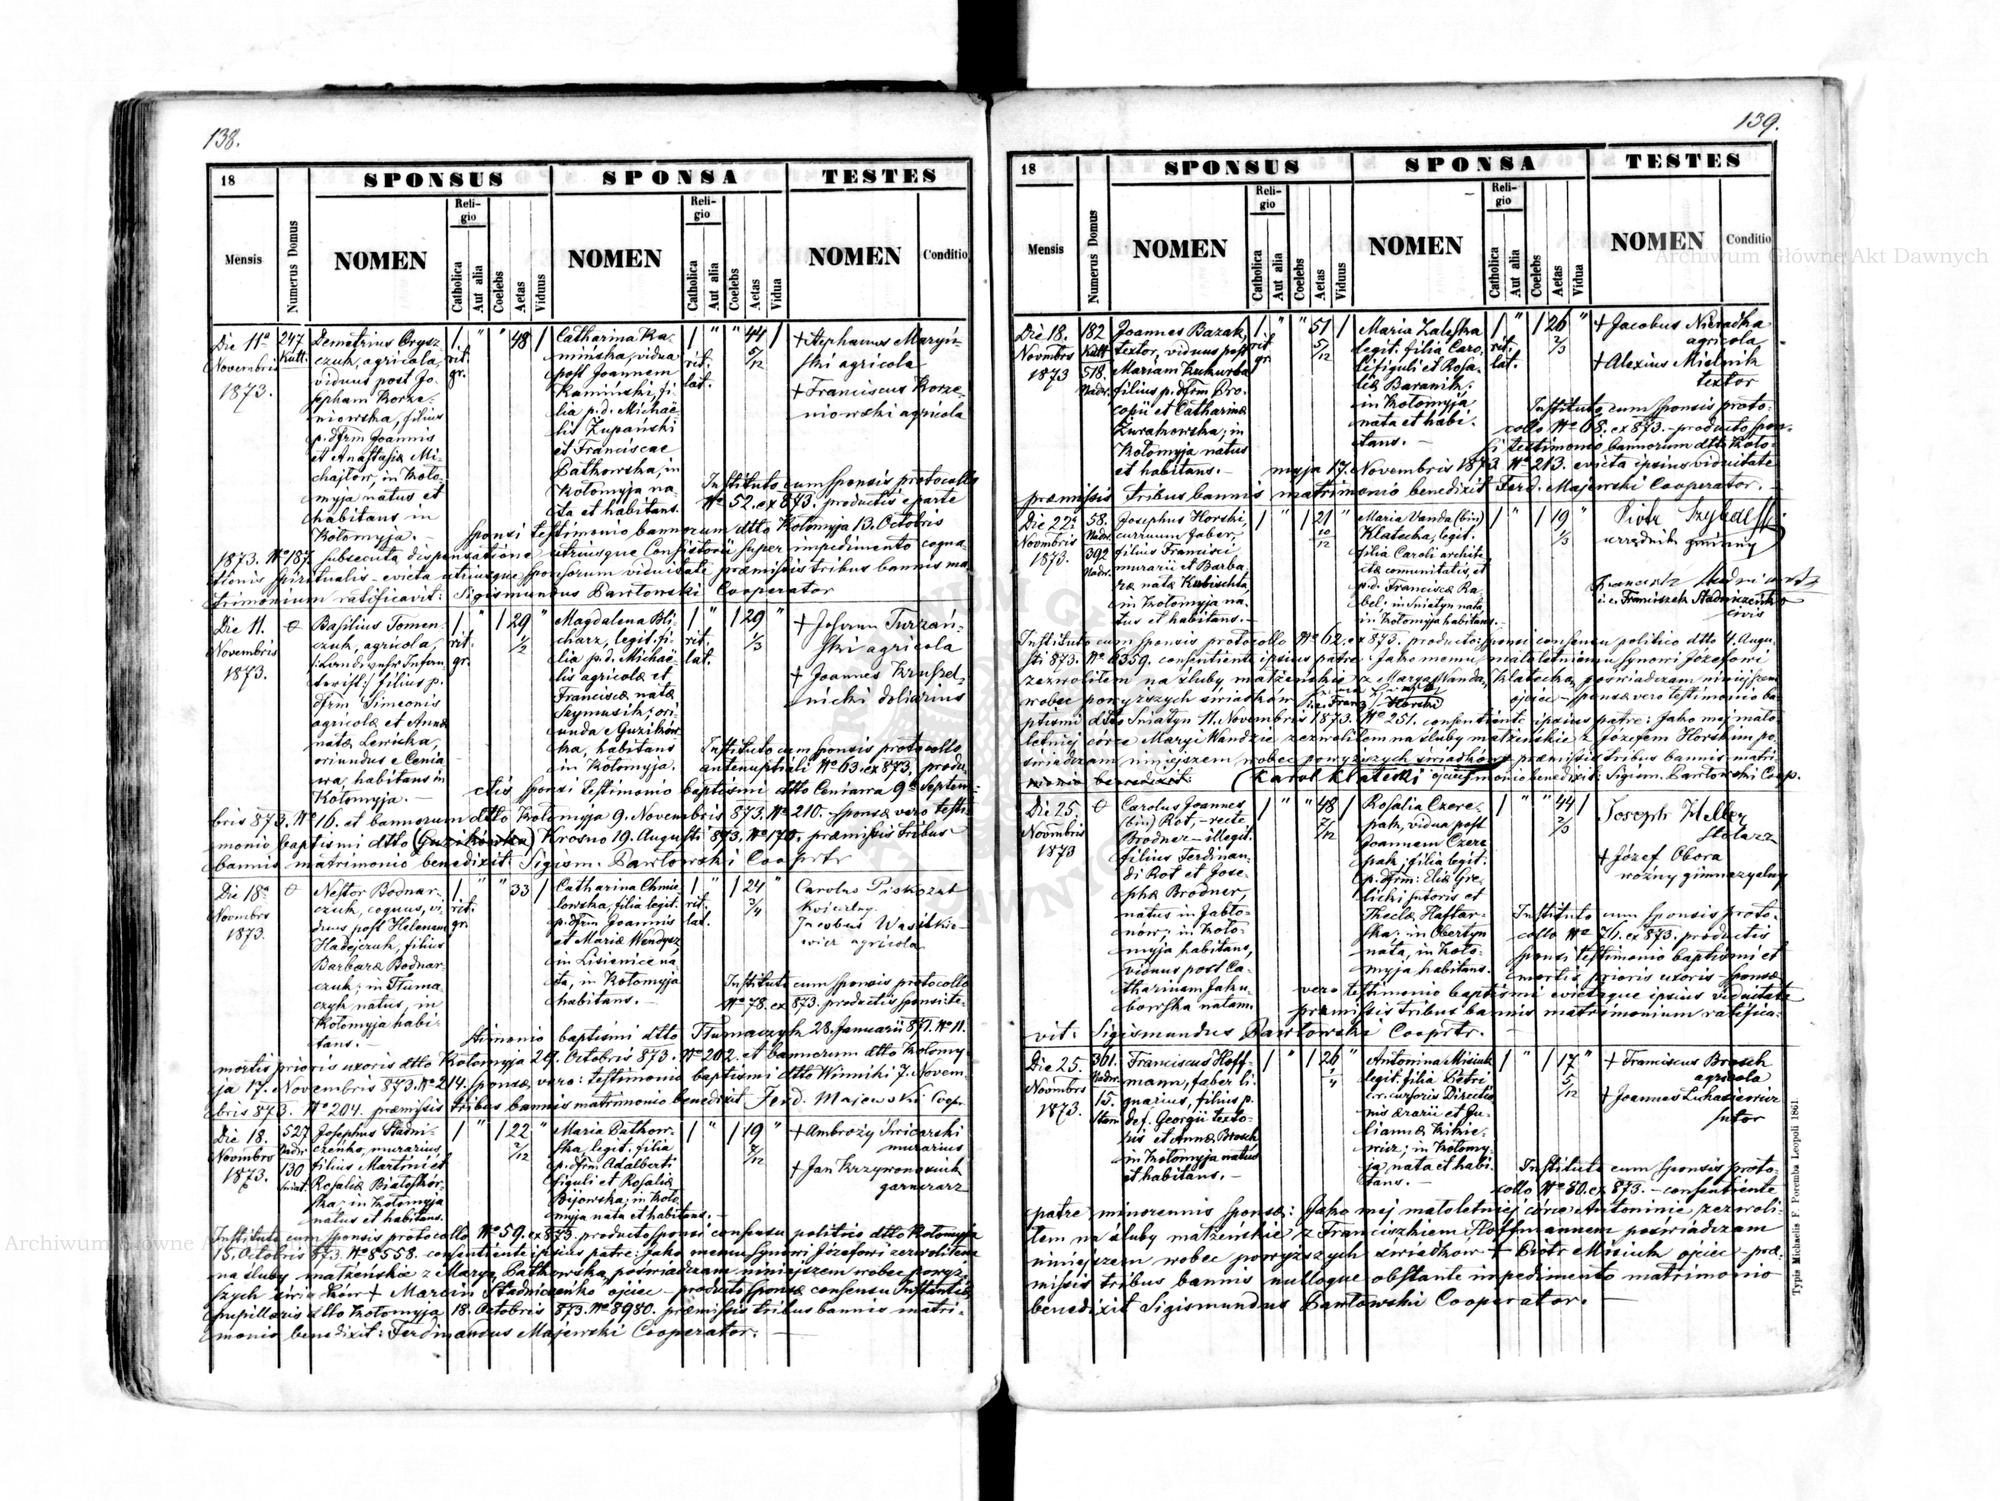 138.
18
SPONSUS
SPONSA
TESTES
Mensis
Numerus Domus
NOMEN
Religio
Catholica
Aut alia
Coelebs
Aetas
Viduus
NOMEN
Religio
Catholica
Aut alia
Coelebs
Aetas
Vidua
NOMEN
Conditio
Die 11a
Novembris
1873.
247
Kutt.
Demetrius Orysz
czuk, agricola,
viduus post Jo-
sepham Korze-
niowska, filius
p. dfrm Joannis
et Anastasiæ Mi-
chajlow, in Koło-
myja natus et
habitans in
Kołomyja. —
1.
rit.
gr.
" " 48 1
Catharina Ka-
mińska, vidua
post Joannem
Kamiński, fi-
lia p. d. Michaë-
lis Zupański
et Franciscae
Batkowska, in
Kołomyja na-
ta et habitans.
1
rit.
lat.
" " 44 1
5/12
+ Stephanus Maryń-
ski agricola
+ Franciscus Korze-
niowski agricola
Instituto cum sponsis protocollo
No 52. ex 873. productis e parte
sponsi testimonio bannorum dtto Kołomyja 13. Octobris
1873. No 187. subsecuta dispensatione utriusque Consistorii super impedimento cogna-
tionis spiritualis – evicta utriusque sponsorum viduitate præmissis tribus bannis ma-
trimonium ratificavit: Sigismundus Pawłowski Cooperator
Die 11.
Novembris
1873.
Basilius Tomen-
czuk, agricola,
filius p.
dfrm Simeonis
agricolæ et Annæ
natæ Lewicka,
oriundus e Cenia
wa, habitans in
Kołomyja. —
1.
rit.
gr.
" 1 29 "
1/2
Magdalena Bli-
charz, legit. fi-
lia p. d. Michaë-
lis agricolæ et
Franciscæ natæ
Szymusik; ori-
unda e Guzików-
ka, habitans
in Kołomyja.
1.
rit.
lat.
" 1 29 "
1/3
+ Johann Turzań-
ski agricola
+ Joannes Krusel-
nicki doliarius
Instituto cum sponsis protocollo
antenuptiali No 63. ex 873, produ-
ctis sponsi testimonio baptismi dtto Ceniawa 9a Septem-
bris 873. No 16. et bannorum dtto Kołomyja 9. Novembris 873. No 210. – sponsæ vero testi-
monio baptismi dtto (Guzikówka) Krosno 19. Augusti 873. No 170. præmissis tribus
bannis matrimonio benedixit. Sigism. Pawłowski Cooprtr
Die 18a
Novmbrs
1873.
Nestor Bodnar-
czuk, coquus, vi-
duus post Helenam
Hadejczuk, filius
Barbaræ Bodnar-
czuk; in Tłuma
czyk natus, in
Kołomyja habi-
tans. —
1.
rit.
gr.
" " 33 1
Catharina Chmie
lowska, filia legit.
p. dfrm Joannis
et Mariæ Wendysz
in Lisienice na
ta, in Kołomyja
habitans. —
1
rit.
lat.
" 1 24 "
3/4
Carolus Piskozub
Jacobus Wasilkie-
wicz agricola
Instituto cum sponsis protocollo
No 78. ex 873. productis sponsi te-
stimonio baptismi dtto Tłumaczyk 28. Januarii 871. No 11.
mortis prioris uxoris dtto Kołomyja 29. Octobris 873. No 202. et bannorum dtto Kołomy-
ja 17. Novembris 873. No 214. sponsæ vero: testimonio baptismi dtto Winniki 7. Novem-
bris 873. No 204. præmissis tribus bannis matrimonio benedixit Ferd. Majewski Coop.
Die 18.
Novmbrs
1873.
527
Nadw
130
Sniat.
Josephus Stadni-
czeńko, murarius,
filius Martini et
Rosaliæ Białoskór-
ska; in Kołomyja
natus et habitans.
1 " 1 22 "
2/12
Maria Batkow-
ska, legit. filia
p. dfrm Adalberti
figuli et Rosaliæ
Bijowska; in Koło
myja nata et habitans. —
1 " 1 19 "
7/12
+ Ambroży Świcarski
murarius
+ Jan Krzywonosiuk
garncarz
Instituto cum sponsis protocollo No 59. ex 873. producto sponsi consensu politico dtto Kołomyja
15. Octobris 873. No 8558. consentiente ipsius patre: Jako memu synowi Józefowi zezwoliłem
na śluby małżeńskie z Maryą Batkowską, poświadczam niniejszem wobec powyż-
szych świadków + Marcin Stadniczeńko ojciec – producto sponsæ consensu Instantiæ
pupillaris dtto Kołomyja 18. Octobris 873. No 8980. præmissis tribus bannis matri-
monio benedixit: Ferdinandus Majewski Cooperator. —
139.
18
SPONSUS
SPONSA
TESTES
Mensis
Numerus Domus
NOMEN
Religio
Catholica
Aut alia
Coelebs
Aetas
Viduus
NOMEN
Religio
Catholica
Aut alia
Coelebs
Aetas
Vidua
NOMEN
Conditio
Die 18.
Novmbrs
1873
182
Kutt
518.
Nadw.
Joannes Bazak,
textor, viduus post
Mariam Kukurba
filius p. dfrm Pro-
copii et Catharinæ
Żurakowska; in
Kołomyja natus
et habitans. —
1
rit
gr.
" " 51 1
5/12
Maria Zaleska
legit. filia Caro-
li figuli et Rosa-
liæ Baranik;
in Kołomyja
nata et habi-
tans. —
1
rit.
lat.
" 1 26 "
2/3
+ Jacobus Nieradka
agricola
+ Alexius Mielnik
textor
Instituto cum sponsis proto-
collo No 68. ex 873. – producto spon-
si testimonio bannorum dtto Koło-
myja 17. Novembris 1873 No 213. evicta ipsius viduitate
præmissis tribus bannis matrimonio benedixit Ferd. Majewski Cooperator. —
Die 22a
Novmbris
1873.
58.
Nadw.
392
Nadw.
Josephus Horski,
curruum faber,
filius Francisci
murarii et Barba-
ræ natæ Kubischta,
in Kołomyja na-
tus et habitans. —
1 " 1 21 "
10/12
Maria Vanda (bin)
Klatecka, legit.
filia Caroli archite-
ctæ comunitatis, et
p. d. Franciscæ Ra-
bel; in Sniatyn nata,
in Kołomyja habitans. —
1 " 1 19 "
1/3
Piotr
urzędnik gminny
i. e. Franciszek Stadniczeńko
civis
Instituto cum sponsis protocollo No 62. ex 873. producto sponsi consensu politico dtto 4. Augu-
sti 873. No 6359. consentiente ipsius patre: Jako memu małoletniemu synowi Józefowi
zezwoliłem na śluby małżeńskie z Maryą Wandą Klatecką, poświadczam niniejszem
wobec powyższych świadków i. e. Franz Horski ojciec – sponsæ vero testimonio ba-
ptismi dtto Śniatyn 11. Novembris 1873. No 251. consentiente ipsius patre: Jako mej mało-
letniej córce Maryi Wandzie zezwoliłem na śluby małżeńskie z Józefem Horskim po-
świadczam niniejszem wobec powyższych świadków præmissis tribus bannis matri-
monio benedixit. (Karol Klatecki ojciec) monio benedixit: Sigism. Pawłowski Coop.
Die 25.
Novmbris
1873
Carolus Joannes
(bin) Rot, – recte
Brodner – illegit.
filius Ferdinan-
di Rot et Jose-
phæ Brodner,
natus in Jabło-
nów; in Koło-
myja habitans,
viduus post Ca-
tharinam Jaku-
bowska natam.
1 " " 48 1
7/12
Rosalia Czere-
pak, vidua post
Joannem Czere
pak; filia legit.
p. dfrm: Eliæ Gre-
lichi sutoris et
Theclæ Haftar-
ska; in Obertyn
nata, in Koło-
myja habitans.
1 " " 44 1
2/3
Joseph Heller
stolarz
+ Józef Obora
woźny gimnazyalny
Instituto cum sponsis proto-
collo No 71. ex 873. productis
sponsi testimonio baptismi et
mortis prioris uxoris – sponsæ
vero testimonio baptismi evictaque ipsius viduitate
præmissis tribus bannis matrimonium ratifica-
vit. Sigismundus Pawłowski Cooprtr. —
Die 25.
Novmbrs
1873.
361.
Nadw.
15.
Stan
Franciscus Hoff-
mann, faber li-
gnarius, filius p.
def. Georgii texto-
ris et Annæ Brosch
in Kołomyja natus
et habitans. —
1 " 1 26 "
1/4
Antonina Misiuk
legit. filia Petri
c. r. cursoris Directio
nis ærarii et Ju-
liannæ Kikie-
wicz; in Kołomy-
ja nata et habi-
tans. —
1 " 1 17 "
5/12
+ Franciscus Brosch
agricola
+ Joannes Lukasiewicz
sutor
Instituto cum sponsis proto-
collo No 80. ex 873. – consentiente
patre minorennis sponsæ: Jako mej małoletniej córce Antoninie zezwoli-
łem na śluby małżeńskie z Franciszkiem Hoffmannem poświadczam
niniejszem wobec powyższych świadków + Piotr Misiuk ojciec – præ-
missis tribus bannis nulloque obstante impedimento matrimonio
benedixit Sigismundus Pawłowski Cooperator. —
Typis Michaelis F. Poremba Leopoli 1861.
Archiwum Główne Akt Dawnych